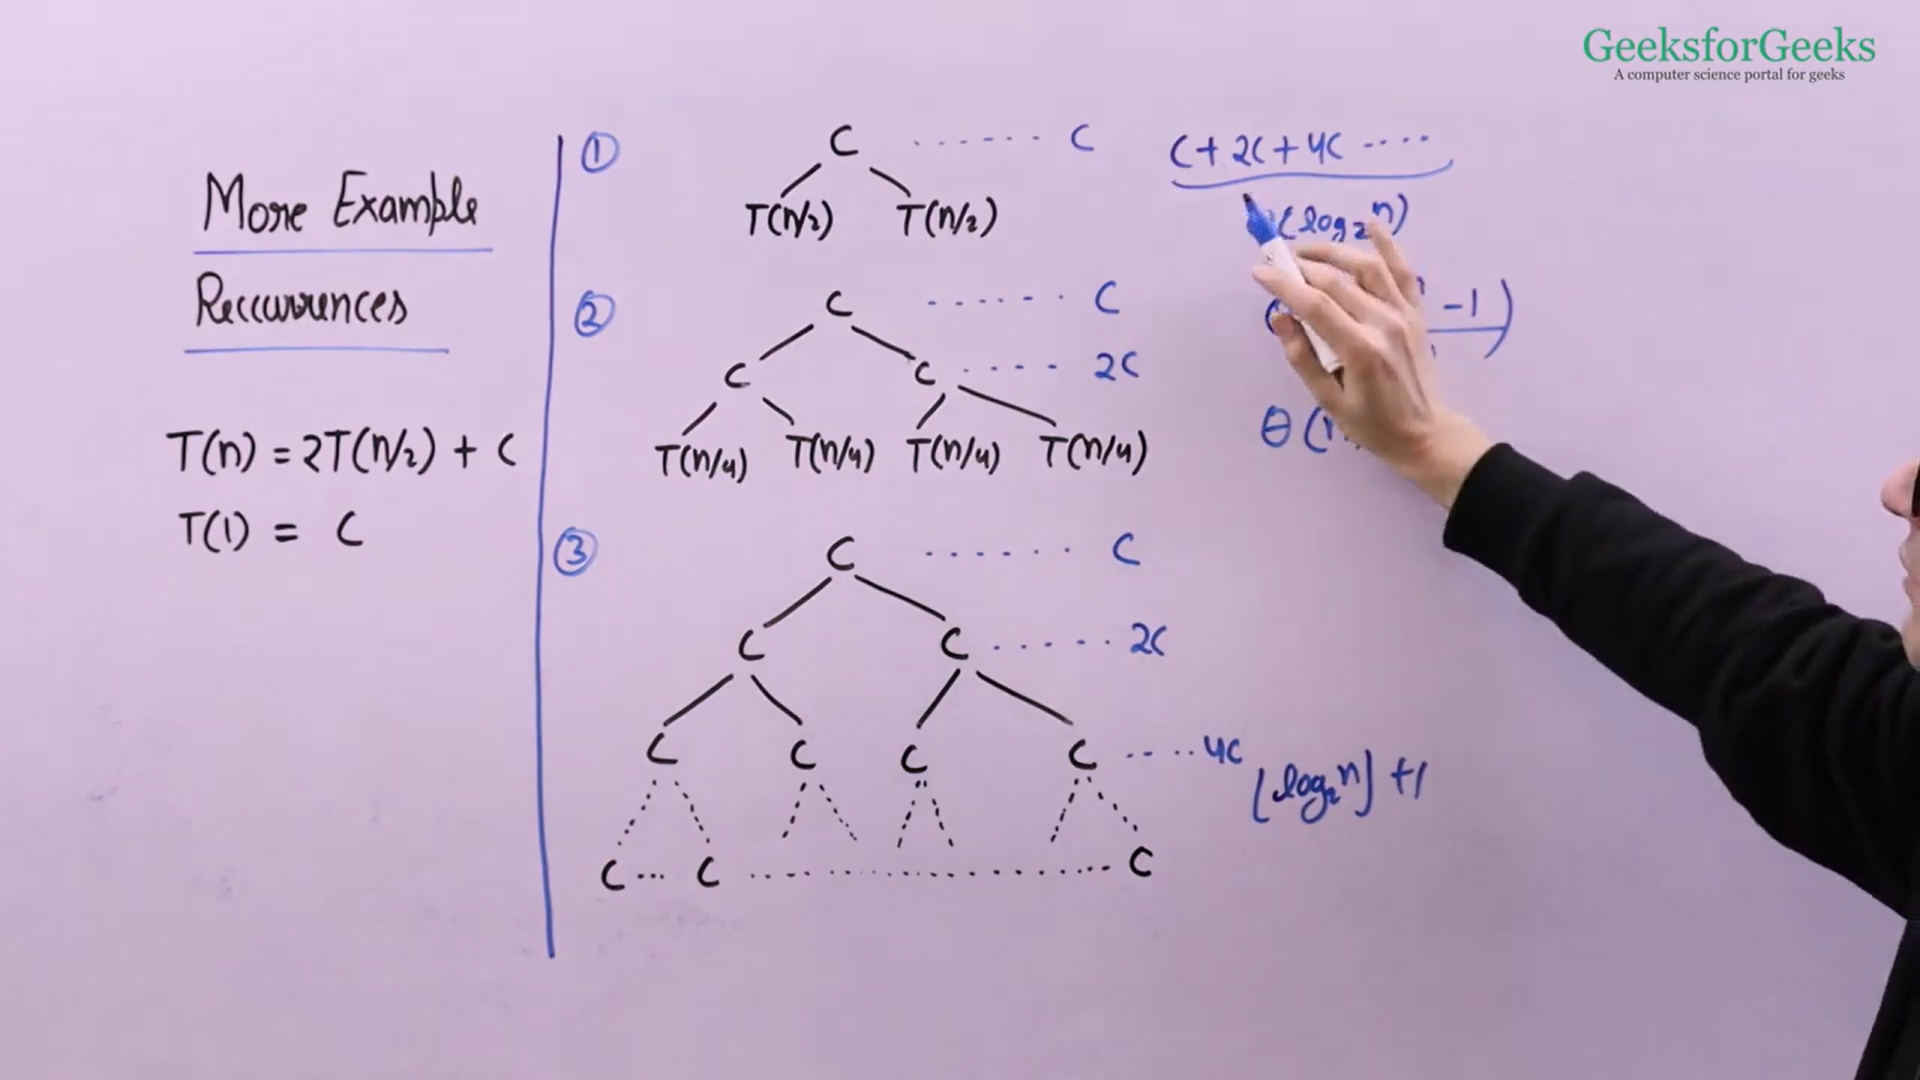 GeeksforGeeks
A computer science portal for geeks
More Example
Reccurrences
T(n) = 2T(n/2) + C
T(1) = C
①
C ------ C
T(n/2) T(n/2)
②
C ------ C
C C ---- 2C
T(n/4) T(n/4) T(n/4) T(n/4)
③
C ...... C
C C ...... 2C
C C C C ..... 4C
C ... C .................. C
⌊log₂n⌋ +1
C + 2C + 4C .....
(log₂n)
-1)
θ(